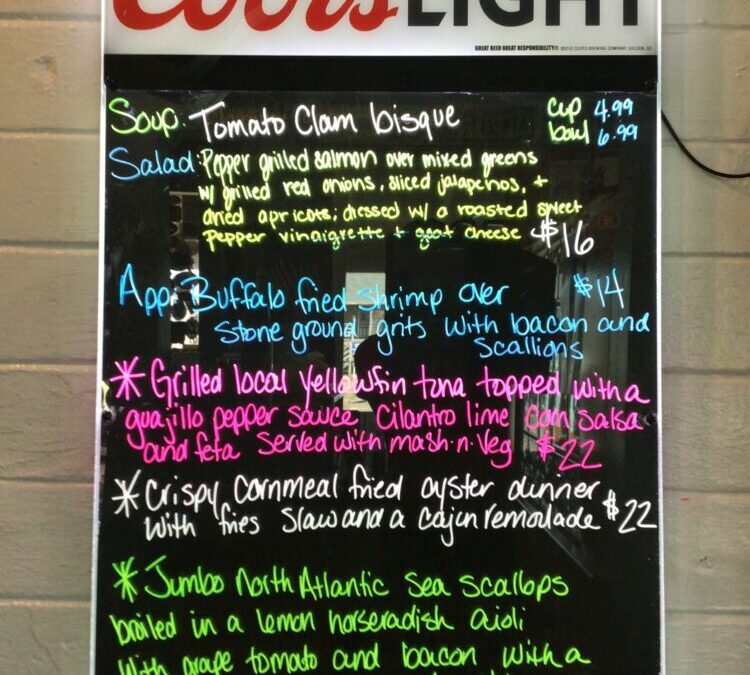 Coors LIGHT
GREAT BEER GREAT RESPONSIBILITY®
Soup: Tomato Clam bisque cup 4.99
bowl 6.99
Salad: Pepper grilled salmon over mixed greens
w/ grilled red onions, sliced jalapenos, +
dried apricots; dressed w/ a roasted sweet
pepper vinaigrette + goat cheese $16
App: Buffalo fried shrimp over $14
stone ground grits with bacon and
scallions
* Grilled local yellowfin tuna topped with a
guajillo pepper sauce Cilantro lime corn salsa
and feta Served with mash-n-veg $22
* Crispy cornmeal fried oyster dinner
with fries slaw and a cajun remolade $22
* Jumbo North Atlantic Sea scallops
broiled in a lemon horseradish aioli
with grape tomato and bacon with a